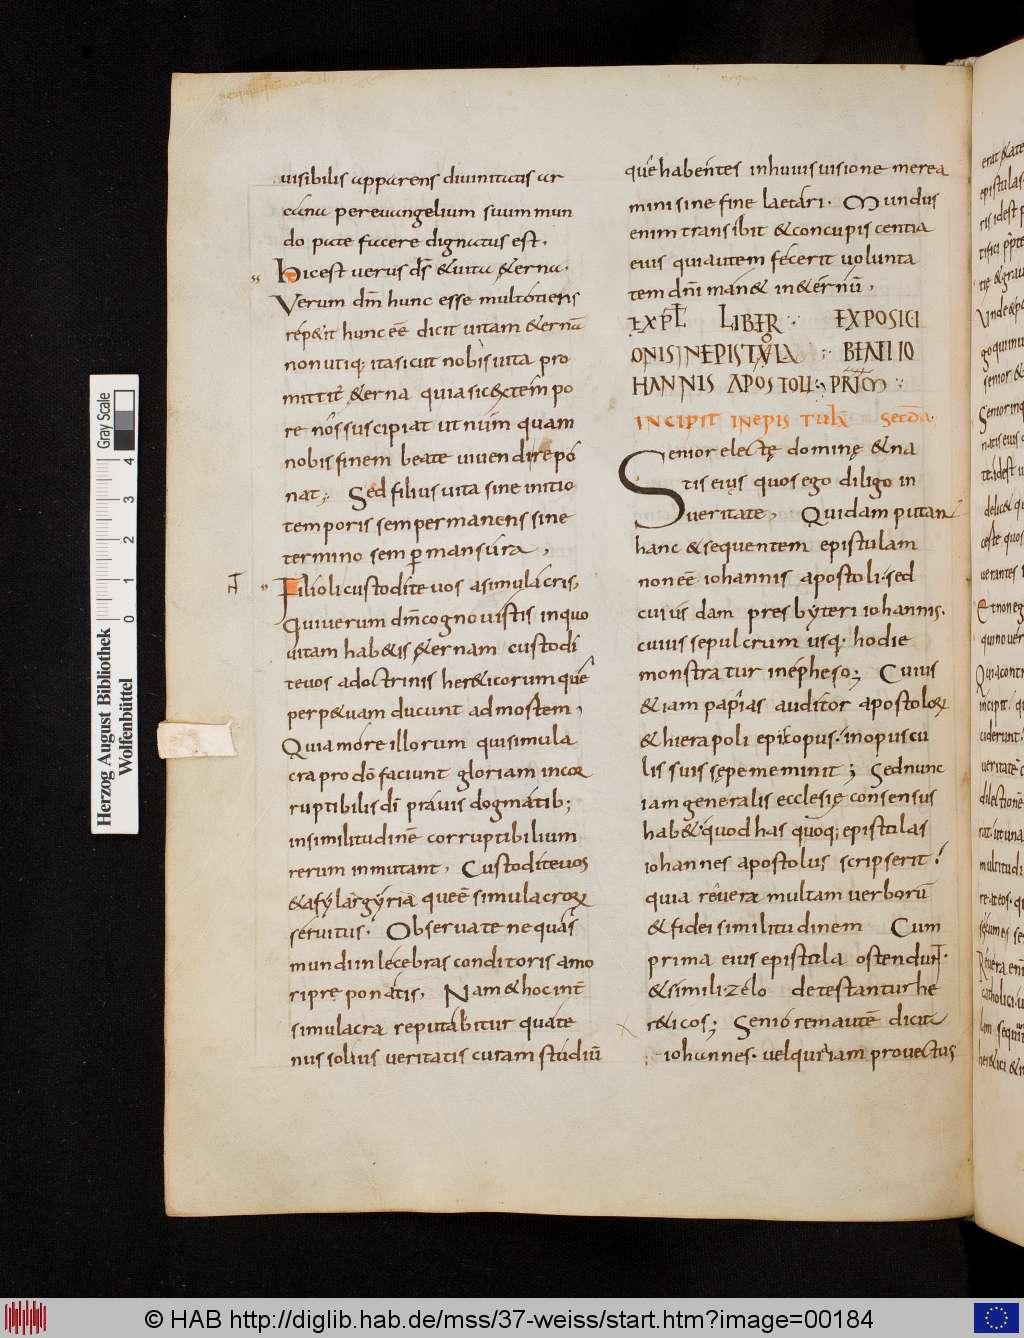 uisibilis apparens diuinitatis ar
cana pereuangelium suum mun
do pate facere dignatus est.
hicest uerus ds̄ &uita &erna.
Verum dm̄ hunc esse multotiens
rép&it huncēē dicit uitam &ernā
nonutiq; itasicut nobis uita pro
mittit̄ &erna quiasic&extem̄ po
re nōssuscipiat utnūm quam
nobisfinem beate uiuendirepó
nat; Sedfilius uita sine initio
temporis sempermanens sine
termino semp mansura,
Filiolicustodite uos asimulacris,
Quiuerum dm̄cognouistis inquo
uitam hab&is &ernam custodi
teuos adoctrinis her&icorum quē
perp&uam ducunt admostem,
Quiamore illorum quisimula
craprodō faciunt gloriam incor
ruptibilis dī prauis dogmatib;
insimilitudinē corruptibilium
rerum inmutant, Custoditeuos
&afylargyria queē simulacrorum
seruitus. Obseruate nequas
mundi inlecebras conditoris amo
ripre ponatis, Nam&hoc int̄
simulacra reputabitur quate
nus solius ueritatis curam studiū
quē habentes inhuius uisione merea
mini sine fine laetari. Mundus
enim transibit &concupiscentia
eius quiautem fecerit uolunta
tem dn̄i man& in&érnū,
EXPL̄ LIBER EXPOSICI
ONIS INEPISTOLA BEATI IO
HANNIS APOSTOLI; PRIM
INCIPIT INEPISTULĀ SECD̄A.
Senior electę dominę &na
tis eius quos ego diligo in
ueritate, Quidam putan
hanc &sequentem epistulam
nonēē iohannis apostoli. sed
cuius dam presbyteri iohannis.
cuius sepulcrum usq; hodie
monstratur inépheso; Cuius
&iam papias auditor apostolorum
&hierapoli episcopus. inopuscu
lis suis sępe meminit; Sednunc
iam generalis ecclesię consensus
hab& quod has quoq; epistulas
iohannes apostolus scripserit.
quia reuera multam uerborū
&fidei similitudinem Cum
prima eius epistula ostendunt.
&simili.zélo detestantur he
r&icos; Seniorem autē dicit
iohannes. uelquiaiam prouectus
Herzog August Bibliothek
Wolfenbüttel
Gray Scale
0 1 2 3 4
© HAB http://diglib.hab.de/mss/37-weiss/start.htm?image=00184